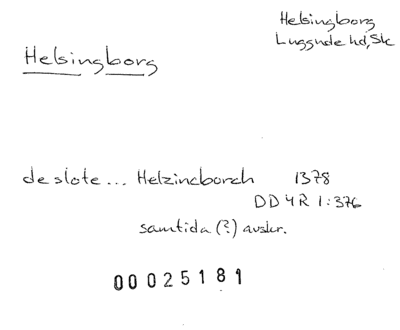 Helsingborg
Luggude hd, Sk
Helsingborg
de slote... Helzincborch 1378
DD 4R 1:376
samtida (?) avskr.
00025181